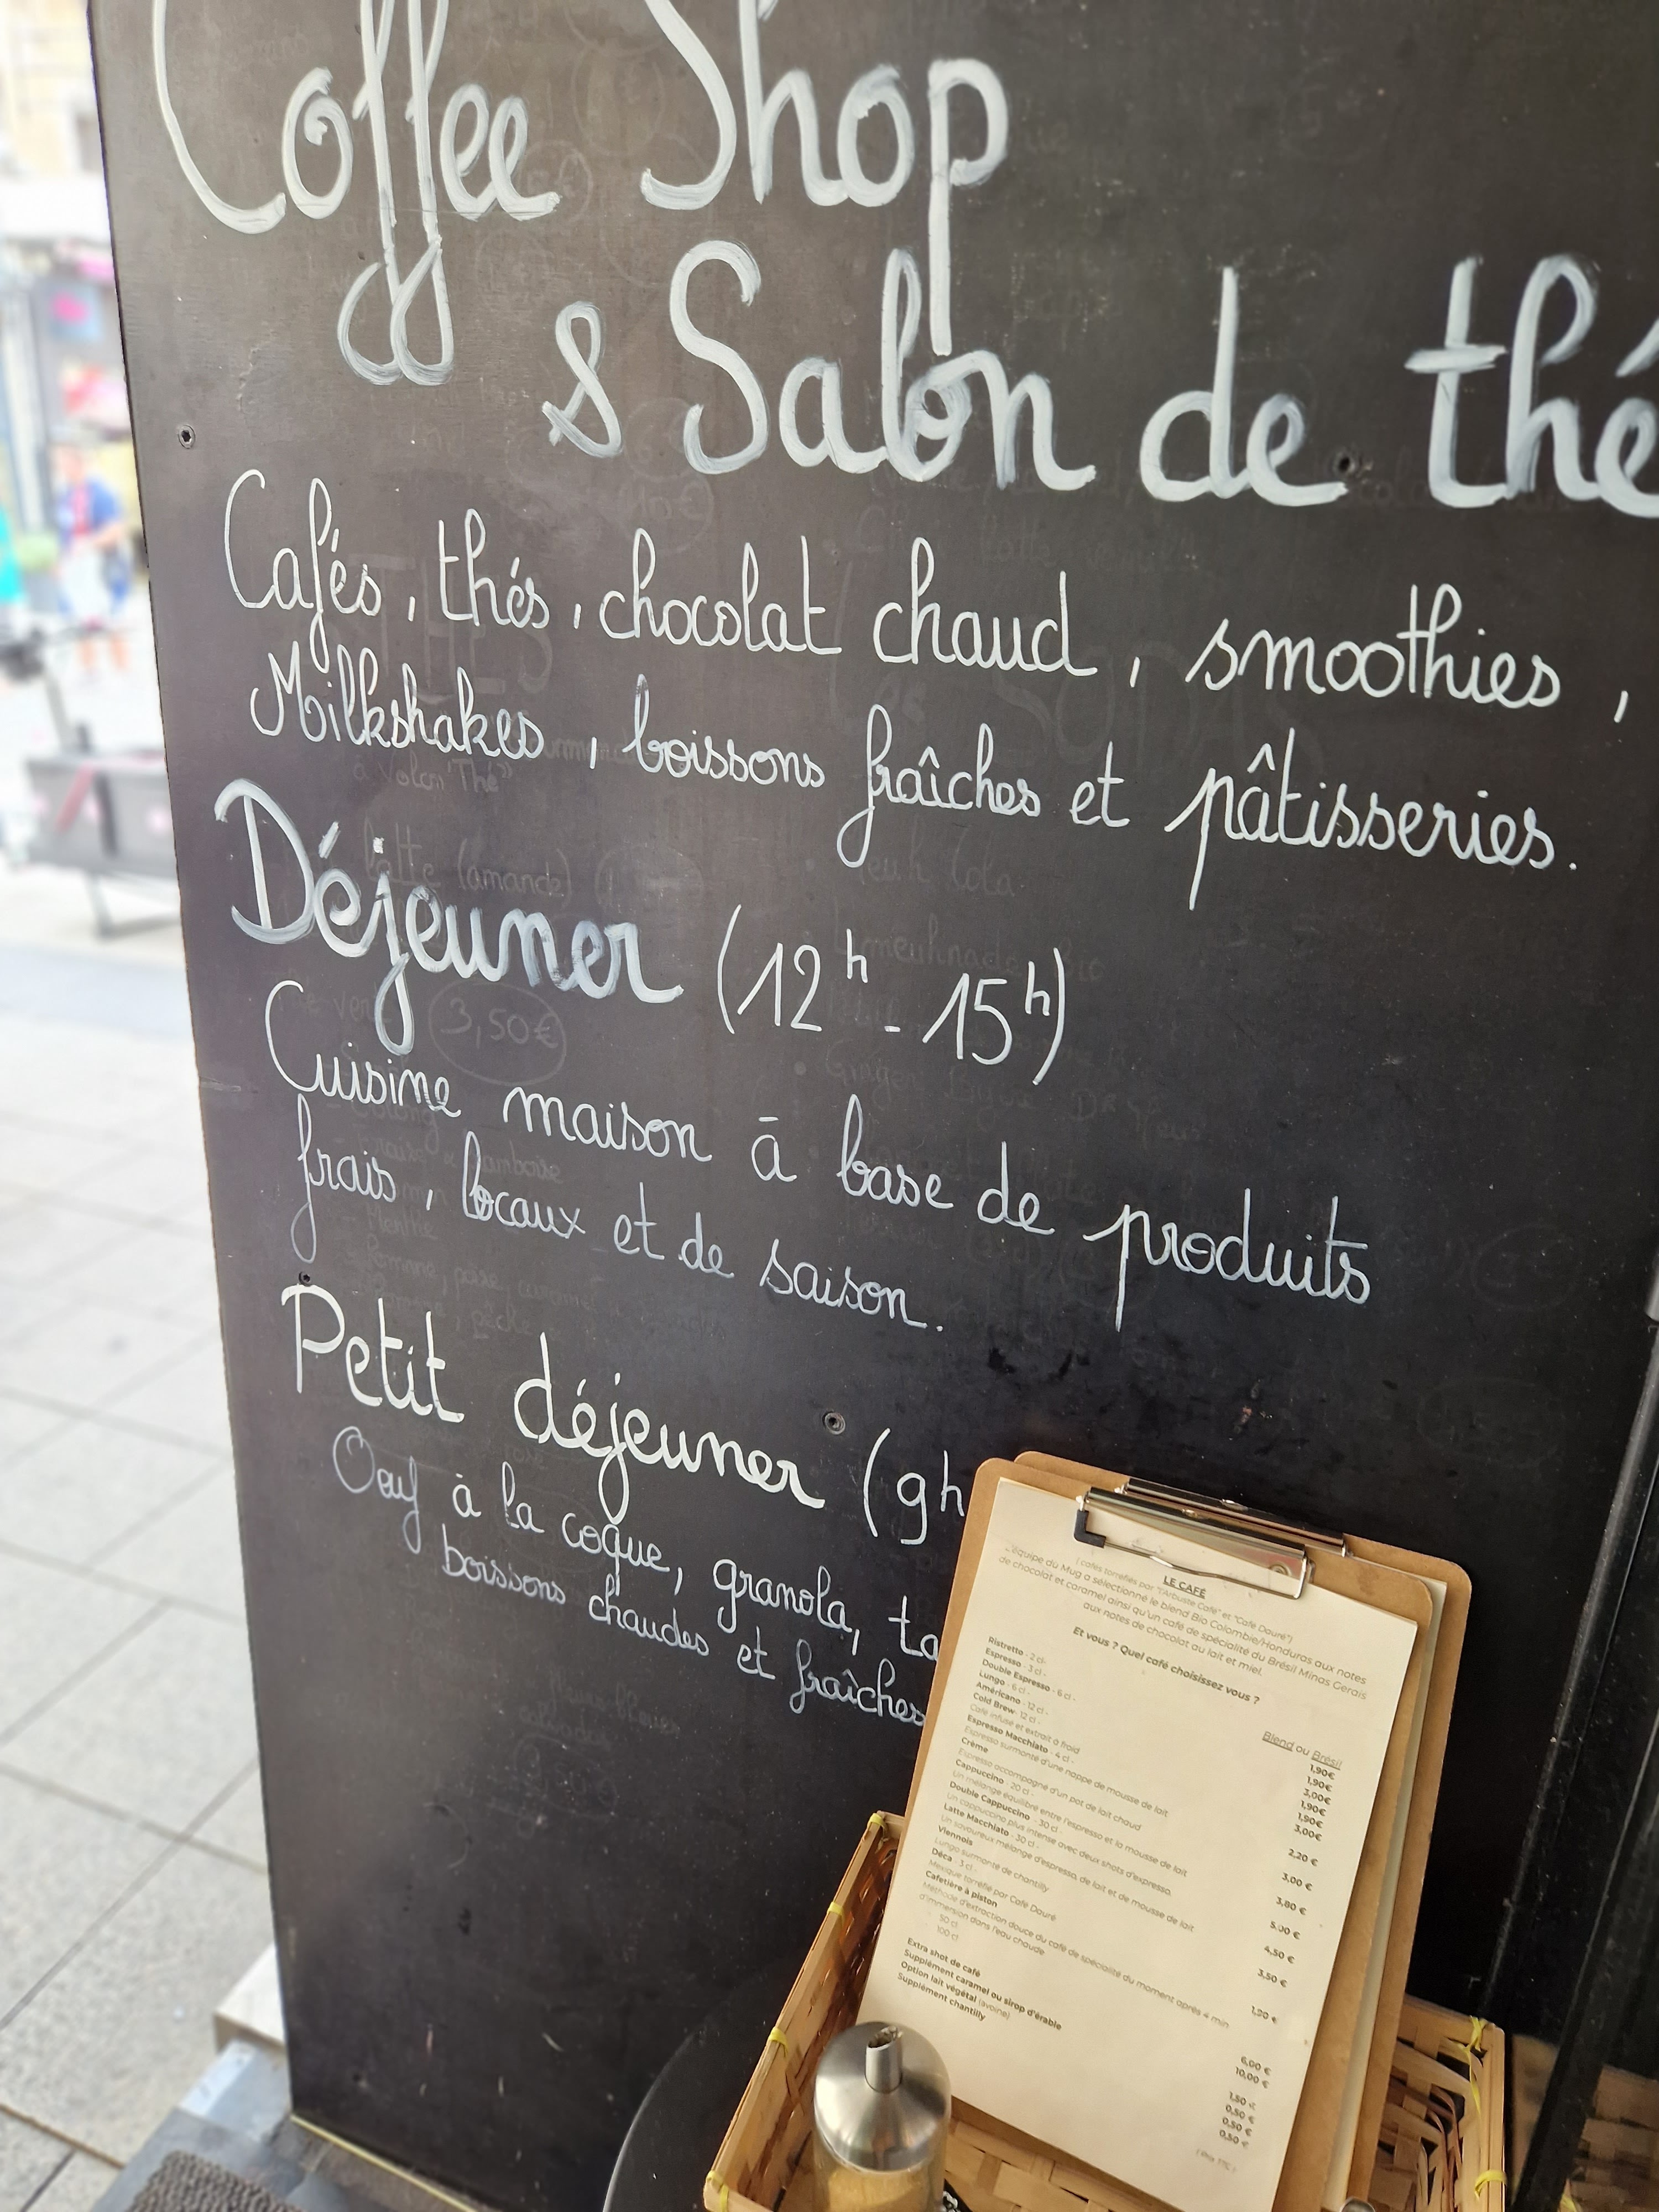 Coffee Shop
& Salon de thé
Cafés, thés, chocolat chaud, smoothies,
Milkshakes, boissons fraîches et pâtisseries.
Déjeuner (12h - 15h)
Cuisine maison à base de produits
frais, locaux et de saison.
Petit déjeuner (9h
Oeuf à la coque, granola, ta
boissons chaudes et fraîches
à Volon'Thé"
latte (amande)
3,50€
LE CAFÉ
(cafés torréfiés par "l'Arbuste Café" et "Café Dauré")
L'équipe du Mug a sélectionné le blend Bio Colombie/Honduras aux notes
de chocolat et caramel ainsi qu'un café de spécialité du Brésil Minas Gerais
aux notes de chocolat au lait et miel.
Et vous ? Quel café choisissez vous ?
Blend ou Brésil
Ristretto - 2 cl- 1,90€
Espresso - 3 cl - 1,90€
Double Espresso - 6 cl - 3,00€
Lungo - 6 cl - 1,90€
Américano - 12 cl - 1,90€
Cold Brew- 12 cl - 3,00€
Café infusé et extrait à froid
Espresso Macchiato - 4 cl - 2,20 €
Espresso surmonté d'une nappe de mousse de lait
Crème 3,00 €
Espresso accompagné d'un pot de lait chaud
Cappuccino - 20 cl - 3,80 €
Un mélange équilibré entre l'espresso et la mousse de lait
Double Cappuccino - 30 cl - 5,00 €
Un cappuccino plus intense avec deux shots d'expresso,
Latte Macchiato - 30 cl - 4,50 €
Un savoureux mélange d'espresso, de lait et de mousse de lait
Viennois 3,50 €
Lungo surmonté de chantilly
Déca - 3 cl - 1,90 €
Mexique torréfié par Café Dauré
Cafetière à piston
Méthode d'extraction douce du café de spécialité du moment après 4 min
d'immersion dans l'eau chaude
50 cl 6,00 €
100 cl 10,00 €
Extra shot de café 1,50 €
Supplément caramel ou sirop d'érable 0,50 €
Option lait végétal (avoine) 0,50 €
Supplément chantilly 0,50 €